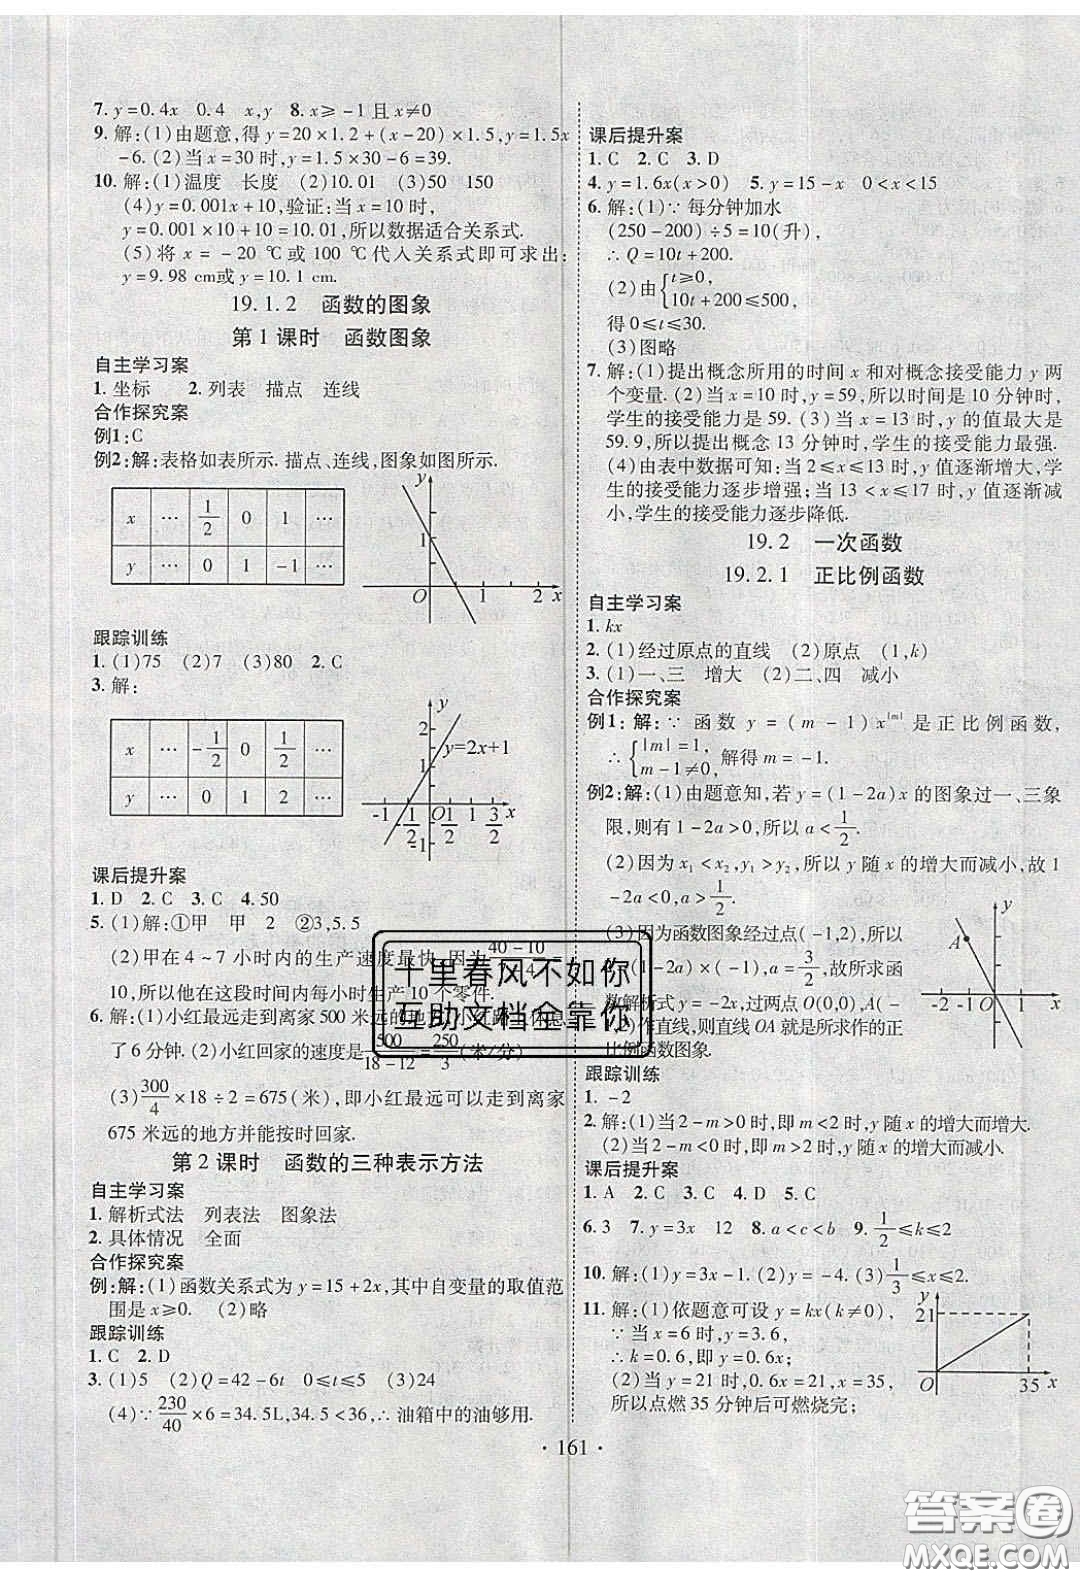 7. y=0.4x 0.4 x,y 8. x≥-1且x≠0
9. 解:(1)由题意,得y=20×1.2+(x-20)×1.5,y=1.5x
-6. (2)当x=30时,y=1.5×30-6=39.
10. 解:(1)温度 长度 (2)10.01 (3)50 150
(4)y=0.001x+10,验证:当x=10时,
y=0.001×10+10=10.01,所以数据适合关系式.
(5)将x=-20 ℃或100 ℃代入关系式即可求出:
y=9.98 cm或y=10.1 cm.
19.1.2 函数的图象
第1课时 函数图象
自主学习案
1. 坐标 2. 列表 描点 连线
合作探究案
例1:C
例2:解:表格如表所示. 描点、连线,图象如图所示.
x … 1/2 0 1 …
y … 0 1 -1 …
y
1
O 1 2 x
跟踪训练
1. (1)75 (2)7 (3)80 2. C
3. 解:
x … -1/2 0 1/2 …
y … 0 1 2 …
y
2
y=2x+1
1
-1 -1/2 O 1/2 1 3/2 x
-1
课后提升案
1. D 2. C 3. C 4. 50
5. (1)解:①甲 甲 2 ②3,5.5
(2)甲在4~7小时内的生产速度最快,因为 40-10
10,所以他在这段时间内每小时生产10个零件.
6. 解:(1)小红最远走到离家500米远的地方,小红路上休息
了6分钟. (2)小红回家的速度是500/(18-12)=250/3(米/分)
(3)300/4×18÷2=675(米),即小红最远可以走到离家
675米远的地方并能按时回家.
第2课时 函数的三种表示方法
自主学习案
1. 解析式法 列表法 图象法
2. 具体情况 全面
合作探究案
例:解:(1)函数关系式为y=15+2x,其中自变量的取值范
围是x≥0. (2)略
跟踪训练
1. C 2. D
3. (1)5 (2)Q=42-6t 0≤t≤5 (3)24
(4)∵230/40×6=34.5L,34.5<36,∴油箱中的油够用.
课后提升案
1. C 2. C 3. D
4. y=1.6x(x>0) 5. y=15-x 0<x<15
6. 解:(1)∵每分钟加水
(250-200)÷5=10(升),
∴Q=10t+200.
(2)由{t≥0,
10t+200≤500,
得0≤t≤30.
(3)图略
7. 解:(1)提出概念所用的时间x和对概念接受能力y两
个变量. (2)当x=10时,y=59,所以时间是10分钟时,
学生的接受能力是59. (3)当x=13时,y的值最大是
59.9,所以提出概念13分钟时,学生的接受能力最强.
(4)由表中数据可知:当2≤x≤13时,y值逐渐增大,学
生的接受能力逐步增强;当13<x≤17时,y值逐渐减
小,学生的接受能力逐步降低.
19.2 一次函数
19.2.1 正比例函数
自主学习案
1. kx
2. (1)经过原点的直线 (2)原点 (1,k)
3. (1)一、三 增大 (2)二、四 减小
合作探究案
例1:解:∵函数y=(m-1)x^|m|是正比例函数,
∴{|m|=1,
m-1≠0, 解得m=-1.
例2:解:(1)由题意知,若y=(1-2a)x的图象过一、三象
限,则有1-2a>0,所以a<1/2.
(2)因为x₁<x₂,y₁>y₂,所以y随x的增大而减小,故1
-2a<0,a>1/2.
(3)因为函数图象经过点(-1,2),所以
(1-2a)×(-1),a=3/2,故所求函
数解析式y=-2x,过两点O(0,0),A(-
作直线,则直线OA就是所求作的正
比例函数图象.
A
-2 -1 O 1 x
跟踪训练
1. -2
2. 解:(1)当2-m>0时,即m<2时,y随x的增大而增大.
(2)当2-m<0时,即m>2时,y随x的增大而减小.
课后提升案
1. A 2. C 3. C 4. D 5. C
6. 3 7. y=3x 12 8. a<c<b 9. 1/2≤k≤2
10. 解:(1)y=3x-1. (2)y=-4. (3)1/3≤x≤2.
11. 解:(1)依题意可设y=kx(k≠0),
∵当x=6时,y=3.6,
∴k=0.6,即y=0.6x;
(2)当y=21时,0.6x=21,x=35,
所以点燃35分钟后可燃烧完;
y
21
O 35 x
· 161 ·
十里春风不如你
互助文档全靠你
答案圈
MXQE.COM